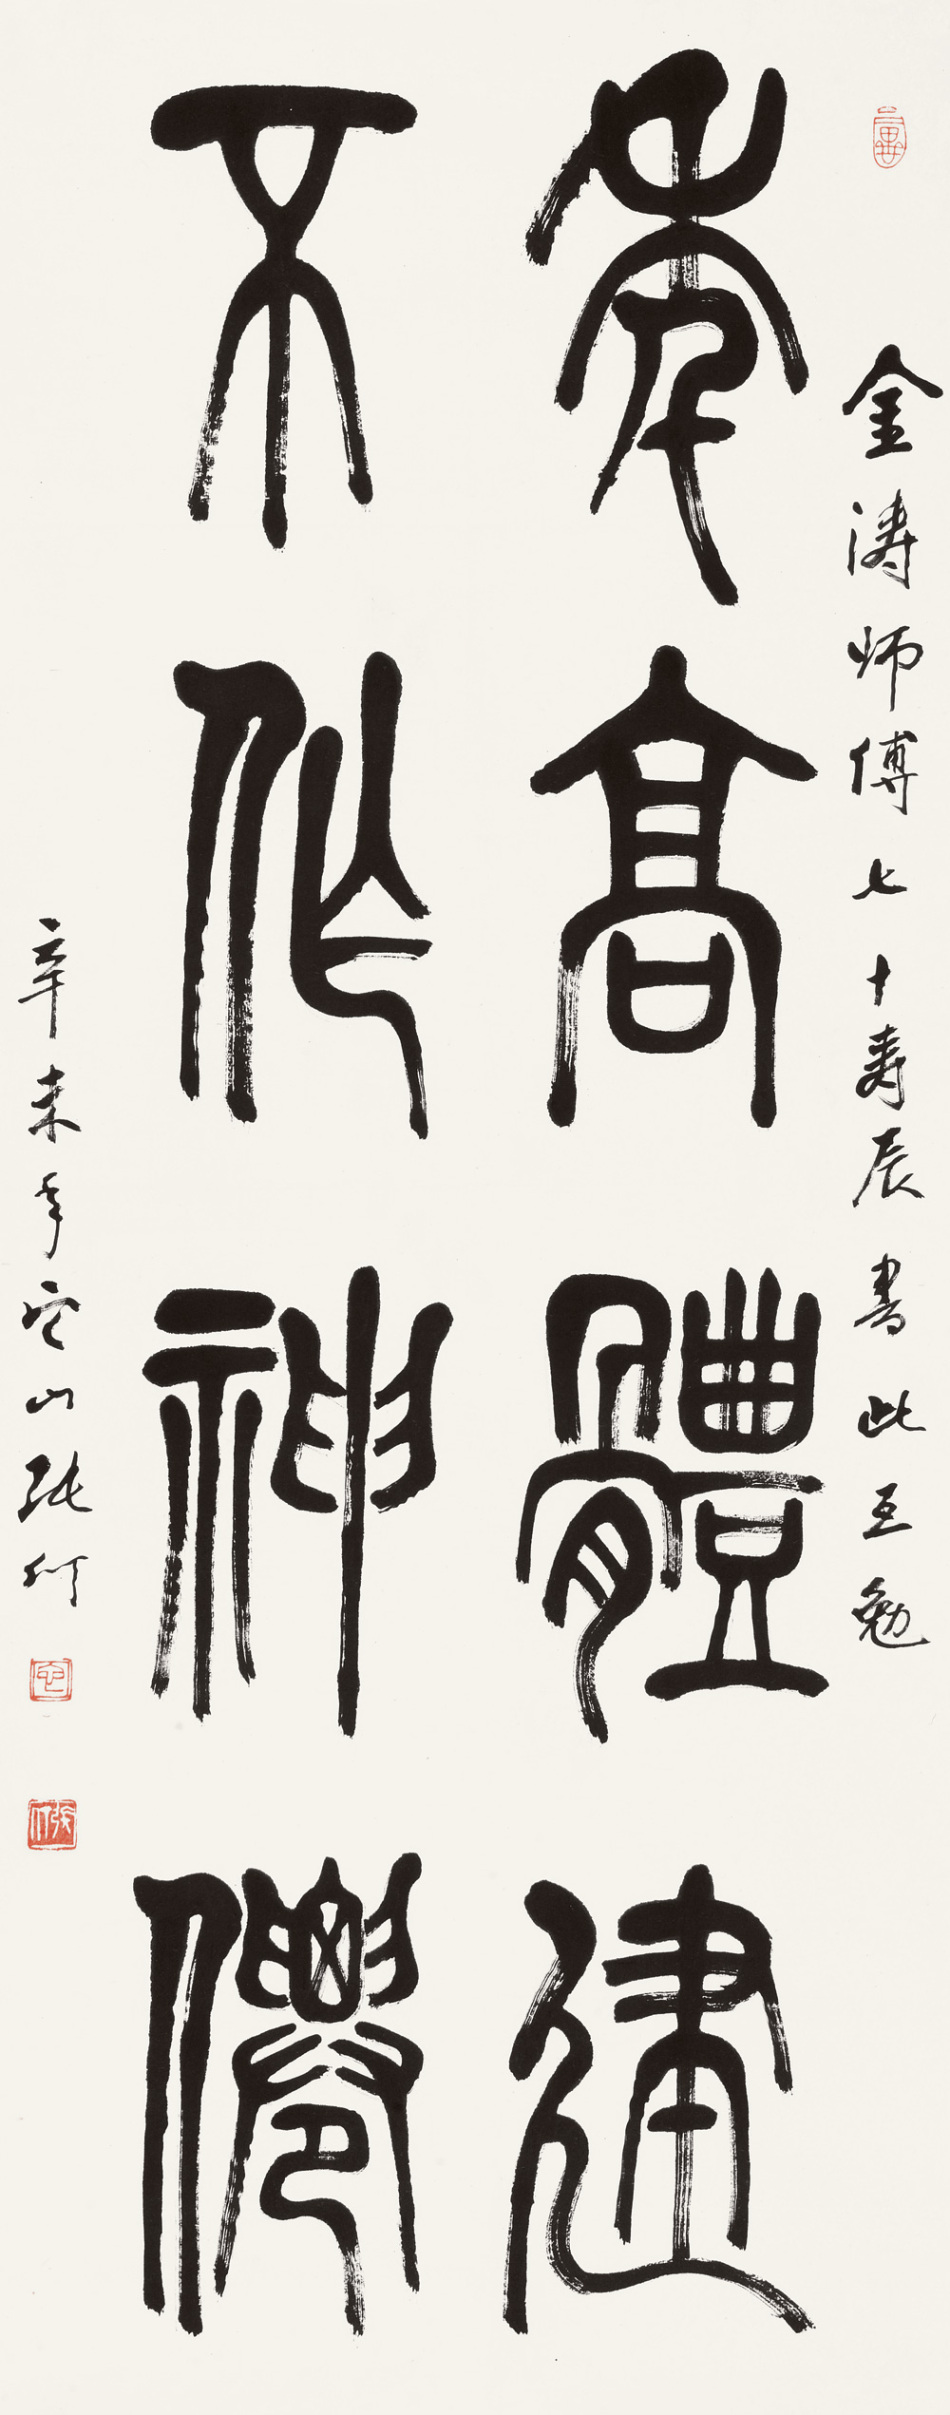 金涛师傅七十寿辰書此互勉
年高體健
不作神僊
辛未年它山张仃